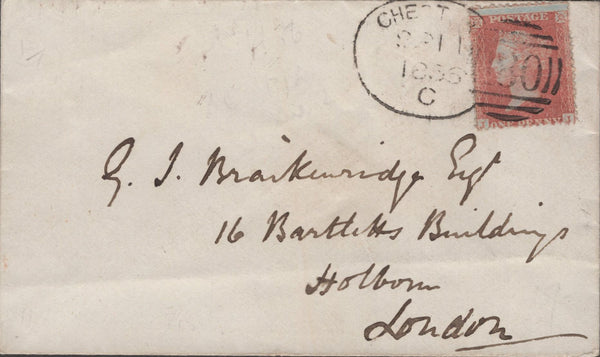 CHEST
1856
C
POSTAGE
G. J. Braikenridge Esqr
16 Bartletts Buildings
Holborn
London